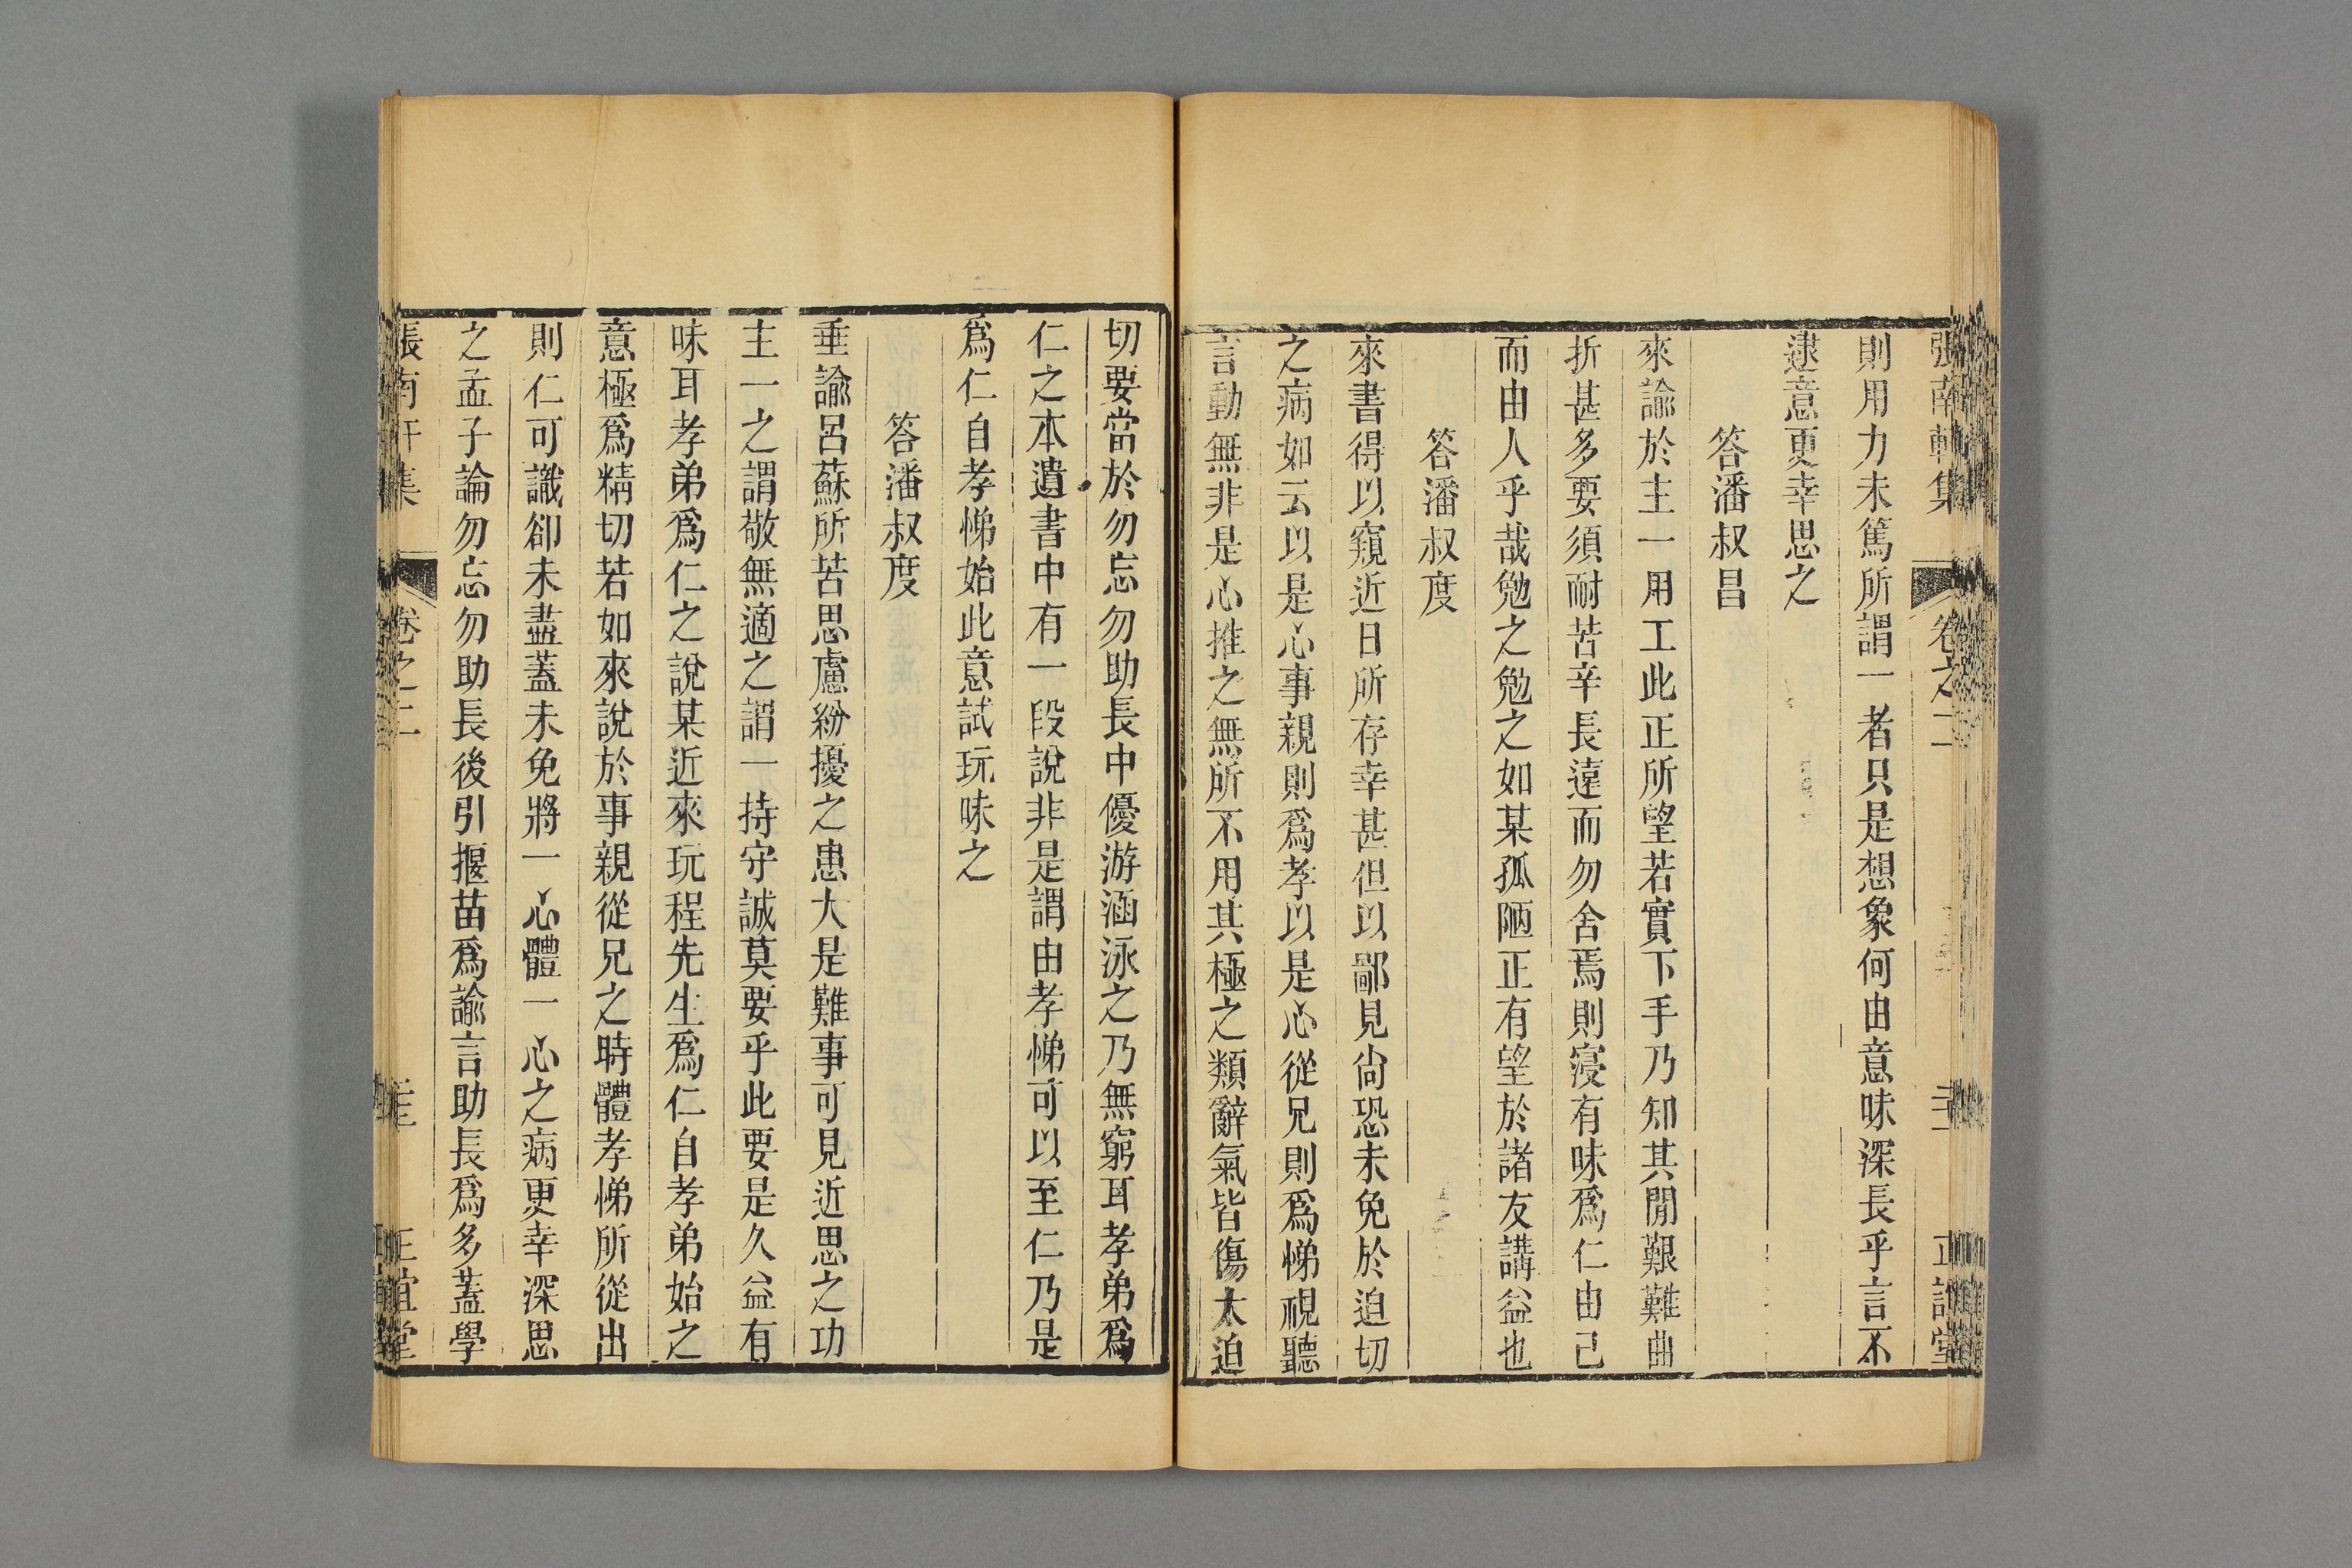 張南軒集 卷之二 正誼堂
則用力未篤所謂一者只是想象何由意味深長乎言不
逮意更幸思之
答潘叔昌
來諭於主一用工此正所望若實下手乃知其閒艱難曲
折甚多要須耐苦辛長遠而勿舍焉則寖有味爲仁由己
而由人乎哉勉之勉之如某孤陋正有望於諸友講益也
答潘叔度
來書得以窺近日所存幸甚但以鄙見尙恐未免於迫切
之病如云以是心事親則爲孝以是心從兄則爲悌視聽
言動無非是心推之無所不用其極之類辭氣皆傷太迫
切要當於勿忘勿助長中優游涵泳之乃無窮耳孝弟爲
仁之本遺書中有一段說非是謂由孝悌可以至仁乃是
爲仁自孝悌始此意試玩味之
答潘叔度
垂諭呂蘇所苦思慮紛擾之患大是難事可見近思之功
主一之謂敬無適之謂一持守誠莫要乎此要是久益有
味耳孝弟爲仁之說某近來玩程先生爲仁自孝弟始之
意極爲精切若如來說於事親從兄之時體孝悌所從出
則仁可識卻未盡蓋未免將一心體一心之病更幸深思
之孟子論勿忘勿助長後引揠苗爲諭言助長爲多蓋學
張南軒集 卷之二 正誼堂